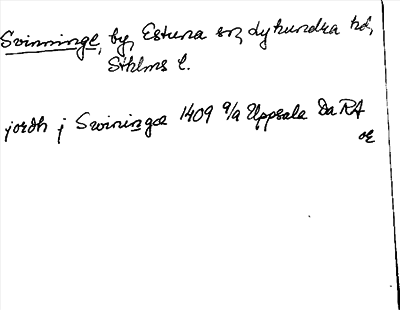 Svinninge, by, Estuna sn, Lyhundra hd,
Sthlms l.
jordh j Swininge 1409 9/2 Uppsala Da RA
oe